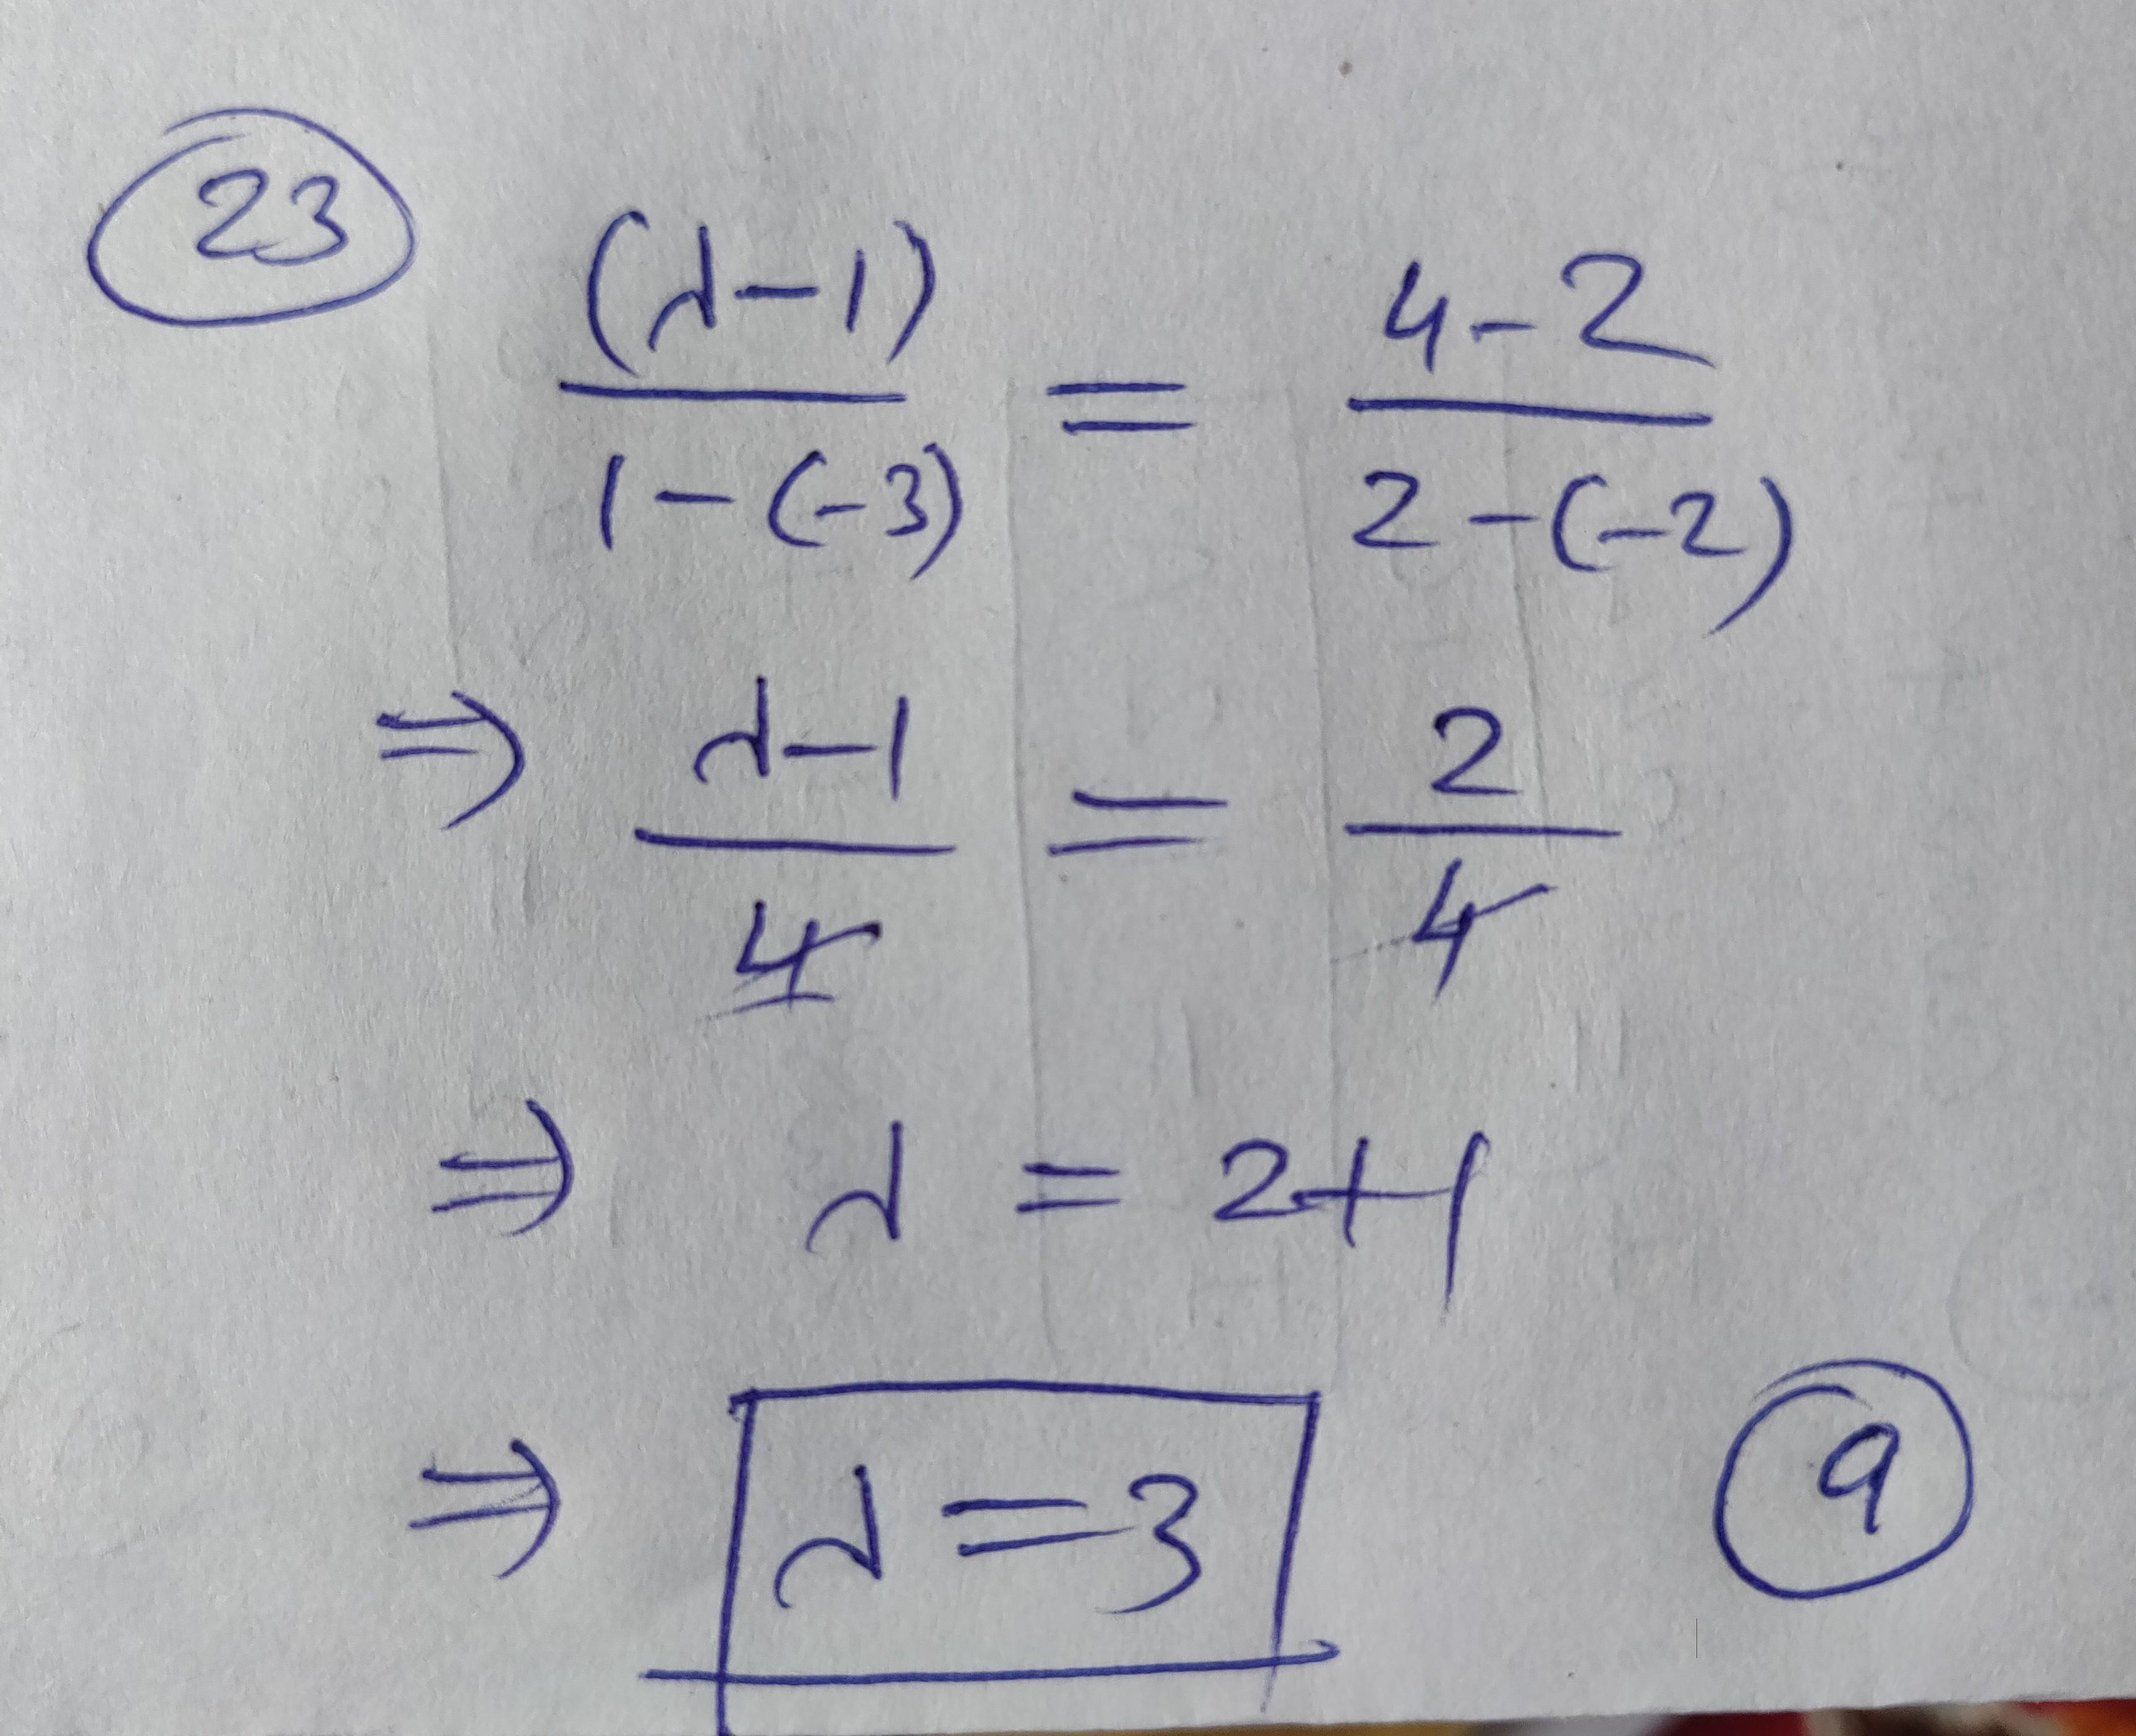 23
(λ-1)/(1-(-3)) = (4-2)/(2-(-2))
⇒ (λ-1)/4 = 2/4
⇒ λ = 2+1
⇒ λ = 3
a